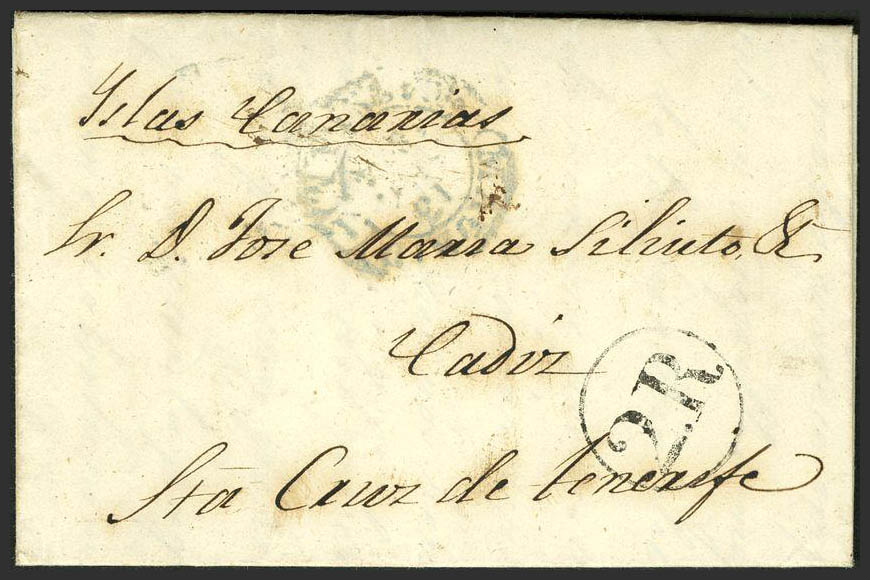 Yslas Canarias
Sr. D. Jose Maria Siliuto, &
Cadiz
2R
Sta Cruz de tenerife